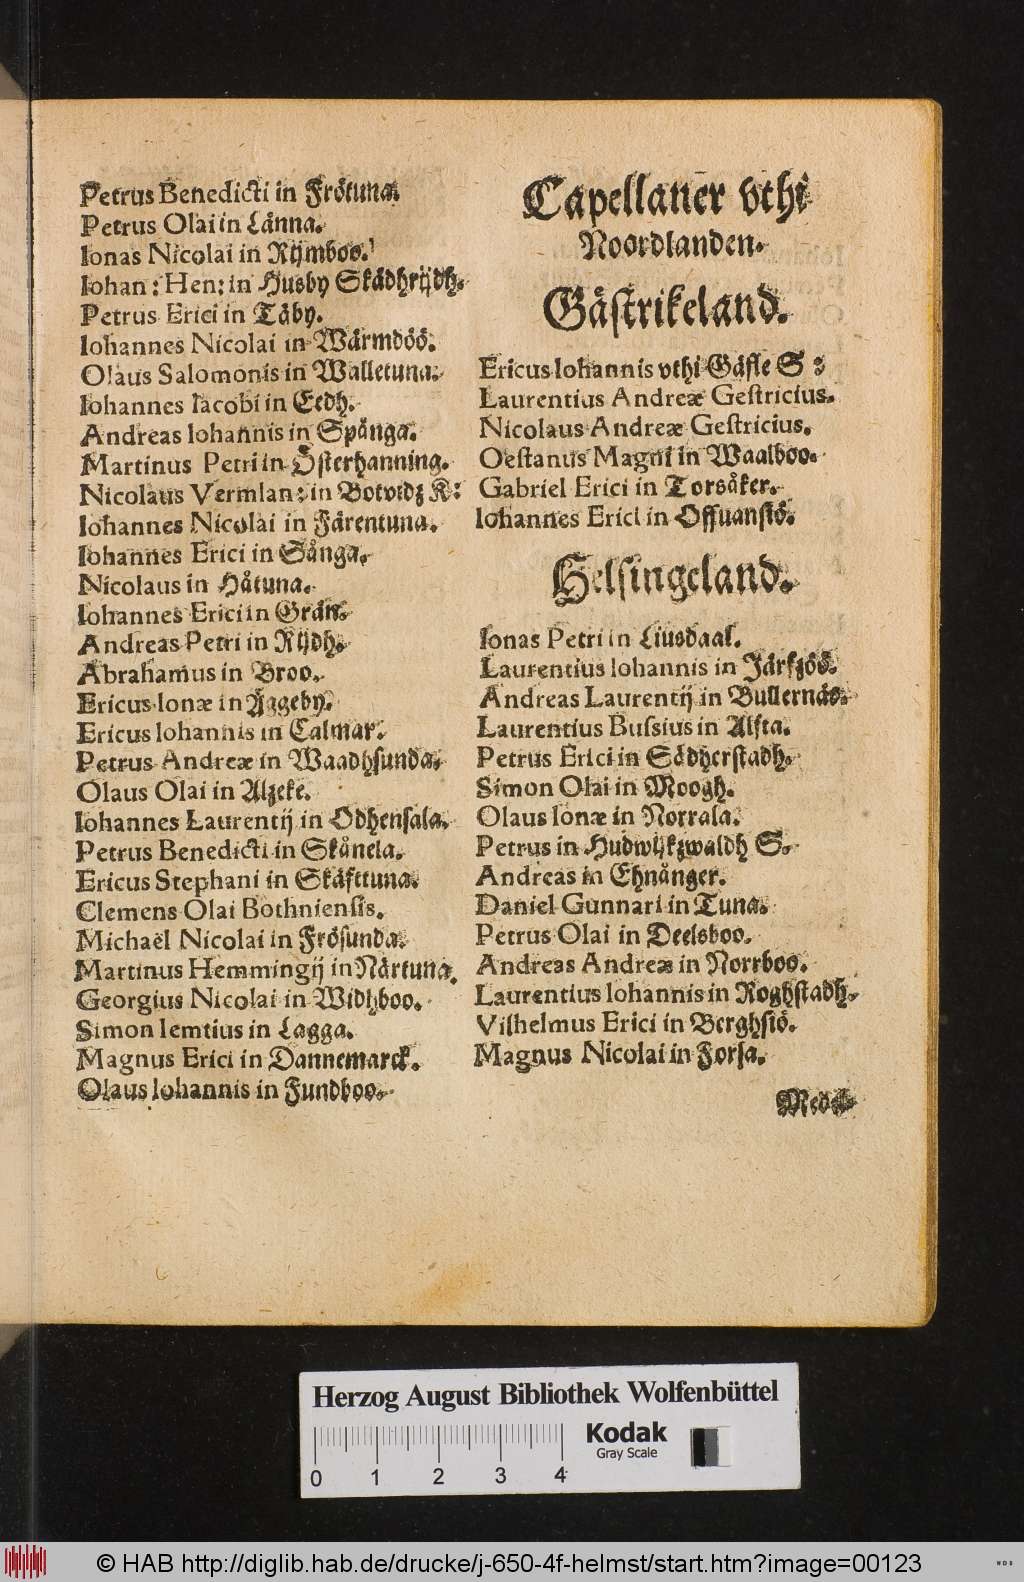 Petrus Benedicti in Frötuna.
Petrus Olai in Länna.
Ionas Nicolai in Rijmboo.
Iohan: Hen: in Husby Skädhrijdh.
Petrus Erici in Täby.
Iohannes Nicolai in Wärmdöö.
Olaus Salomonis in Walletuna.
Iohannes Iacobi in Eedh.
Andreas Iohannis in Spånga.
Martinus Petri in Österhanning.
Nicolaus Vermlan: in Botvidz K:
Iohannes Nicolai in Färentuna.
Iohannes Erici in Sånga.
Nicolaus in Håtuna.
Iohannes Erici in Grän.
Andreas Petri in Rijdh.
Abrahamus in Broo.
Ericus Ionæ in Äggeby.
Ericus Iohannis in Calmar.
Petrus Andreæ in Waadhsunda.
Olaus Olai in Alzeke.
Iohannes Laurentij in Odhensala.
Petrus Benedicti in Skånela.
Ericus Stephani in Skäfttuna.
Clemens Olai Bothniensis.
Michaël Nicolai in Frösunda.
Martinus Hemmingij in Närtuna.
Georgius Nicolai in Widhboo.
Simon Iemtius in Lagga.
Magnus Erici in Dannemarck.
Olaus Iohannis in Fundboo.
Capellaner vthi
Noordlanden.
Gästrikeland.
Ericus Iohannis vthi Gäfle S:
Laurentius Andreæ Gestricius.
Nicolaus Andreæ Gestricius.
Oestanus Magni in Waalboo.
Gabriel Erici in Torsåker.
Iohannes Erici in Offuansiö.
Helsingeland.
Ionas Petri in Liusdaal.
Laurentius Iohannis in Järfzöö.
Andreas Laurentij in Bullernäs.
Laurentius Bussius in Alfta.
Petrus Erici in Södherstadh.
Simon Olai in Moogh.
Olaus Ionæ in Norrala.
Petrus in Hudwijkzwaldh S.
Andreas in Ehnånger.
Daniel Gunnari in Tuna.
Petrus Olai in Deelsboo.
Andreas Andreæ in Norrboo.
Laurentius Iohannis in Roghstadh.
Vilhelmus Erici in Berghsiö.
Magnus Nicolai in Forsa.
Herzog August Bibliothek Wolfenbüttel
Kodak
Gray Scale
0 1 2 3 4
© HAB http://diglib.hab.de/drucke/j-650-4f-helmst/start.htm?image=00123